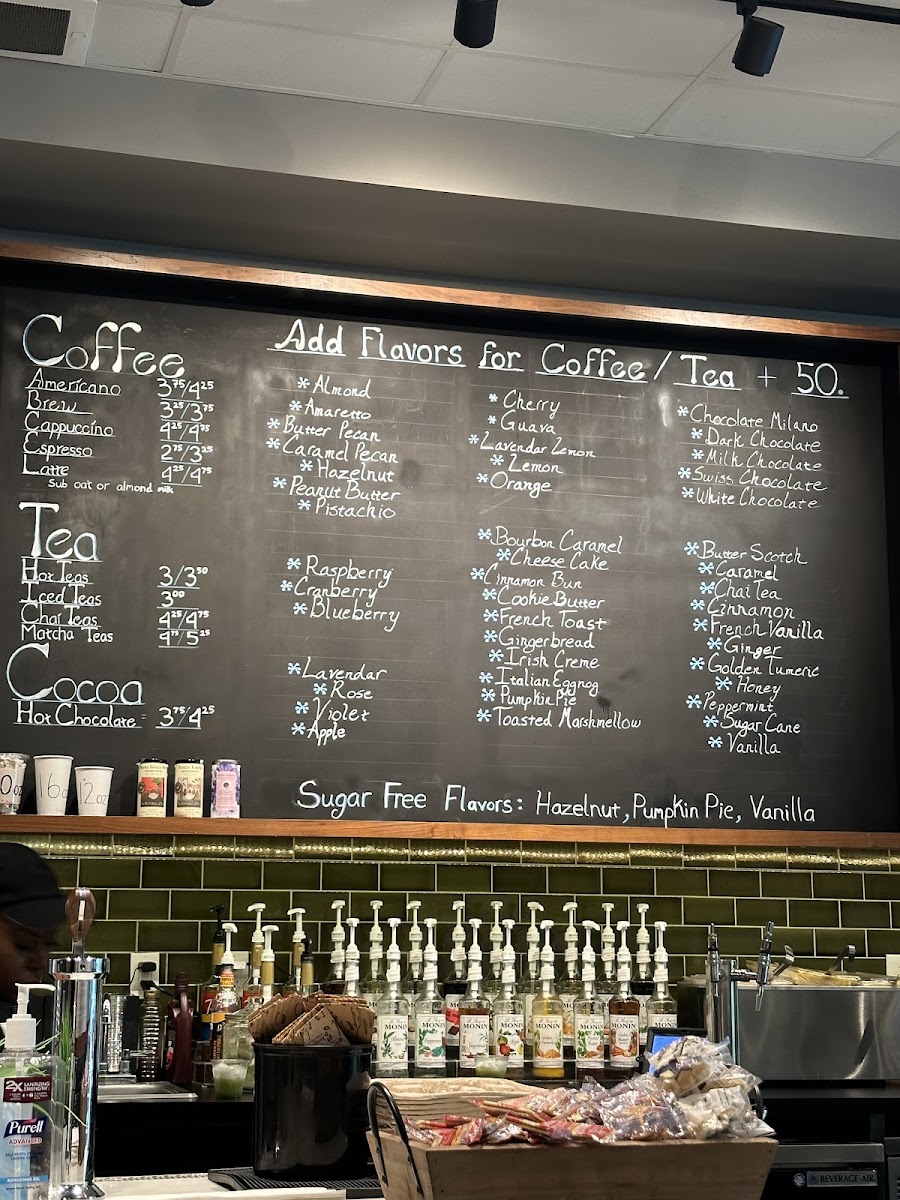 Coffee
Americano 3⁷⁵/4²⁵
Brew 3²⁵/3⁷⁵
Cappuccino 4²⁵/4⁷⁵
Espresso 2⁷⁵/3²⁵
Latte 4²⁵/4⁷⁵
Sub oat or almond milk
Tea
Hot Teas 3/3⁵⁰
Iced Teas 3⁰⁰
Chai Teas 4²⁵/4⁷⁵
Matcha Teas 4⁷⁵/5²⁵
Cocoa
Hot Chocolate 3⁷⁵/4²⁵
Add Flavors for Coffee/Tea + 50.
* Almond
* Amaretto
* Butter Pecan
* Caramel Pecan
* Hazelnut
* Peanut Butter
* Pistachio
* Raspberry
* Cranberry
* Blueberry
* Lavendar
* Rose
* Violet
* Apple
* Cherry
* Guava
* Lavendar Lemon
* Lemon
* Orange
* Bourbon Caramel
* Cheese Cake
* Cinnamon Bun
* Cookie Butter
* French Toast
* Gingerbread
* Irish Creme
* Italian Eggnog
* Pumpkin Pie
* Toasted Marshmellow
* Chocolate Milano
* Dark Chocolate
* Milk Chocolate
* Swiss Chocolate
* White Chocolate
* Butter Scotch
* Caramel
* Chai Tea
* Cinnamon
* French Vanilla
* Ginger
* Golden Tumeric
* Honey
* Peppermint
* Sugar Cane
* Vanilla
Sugar Free Flavors: Hazelnut, Pumpkin Pie, Vanilla
12oz
MONIN
MONIN
MONIN
MONIN
MONIN
MONIN
MONIN
2X SANITIZING STRENGTH
Purell
ADVANCED
BEVERAGE-AIR